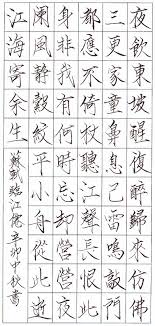 夜飲東坡醒復醉歸來仿佛
三更家童鼻息已雷鳴敲門
都應不倚杖聽江聲長恨此
身非我有何時忘卻營營夜
闌風靜縠紋平小舟從此逝
江海寄余生
蘇軾臨江仙辛卯中秋書